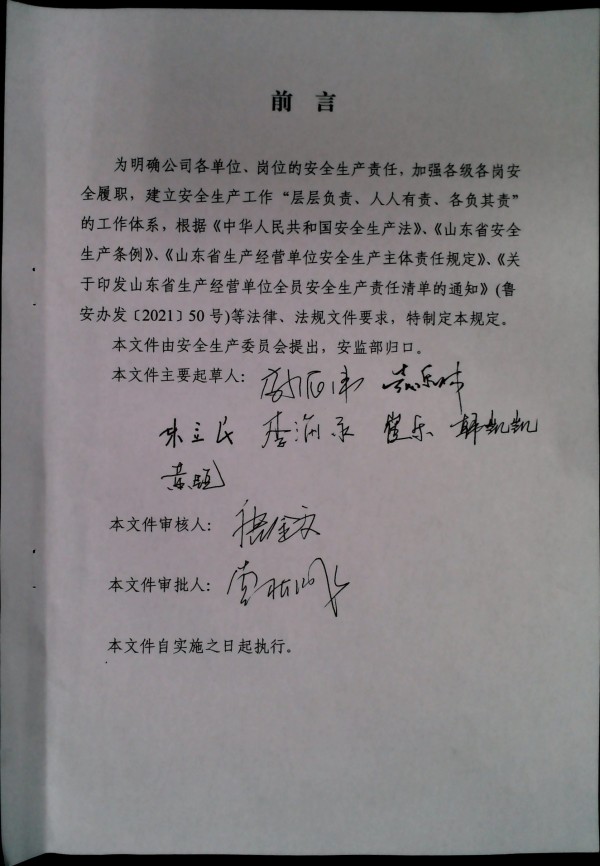 前言
为明确公司各单位、岗位的安全生产责任，加强各级各岗安
全履职，建立安全生产工作“层层负责、人人有责、各负其责”
的工作体系，根据《中华人民共和国安全生产法》、《山东省安全
生产条例》、《山东省生产经营单位安全生产主体责任规定》、《关
于印发山东省生产经营单位全员安全生产责任清单的通知》(鲁
安办发〔2021〕50号)等法律、法规文件要求，特制定本规定。
本文件由安全生产委员会提出，安监部归口。
本文件主要起草人：
朱立民 崔乐 韩凯凯
本文件审核人：
本文件审批人：
本文件自实施之日起执行。